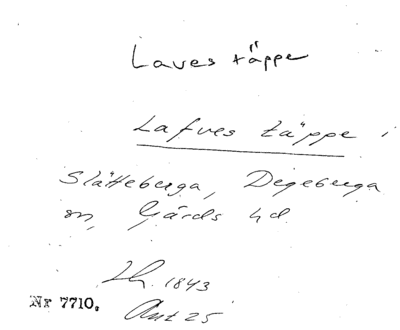 Laves täppe
Lafves täppe i
Slätteberga, Degeberga
sn, Gärds hd
Lh. 1843
Ant 25
Nr 7710.